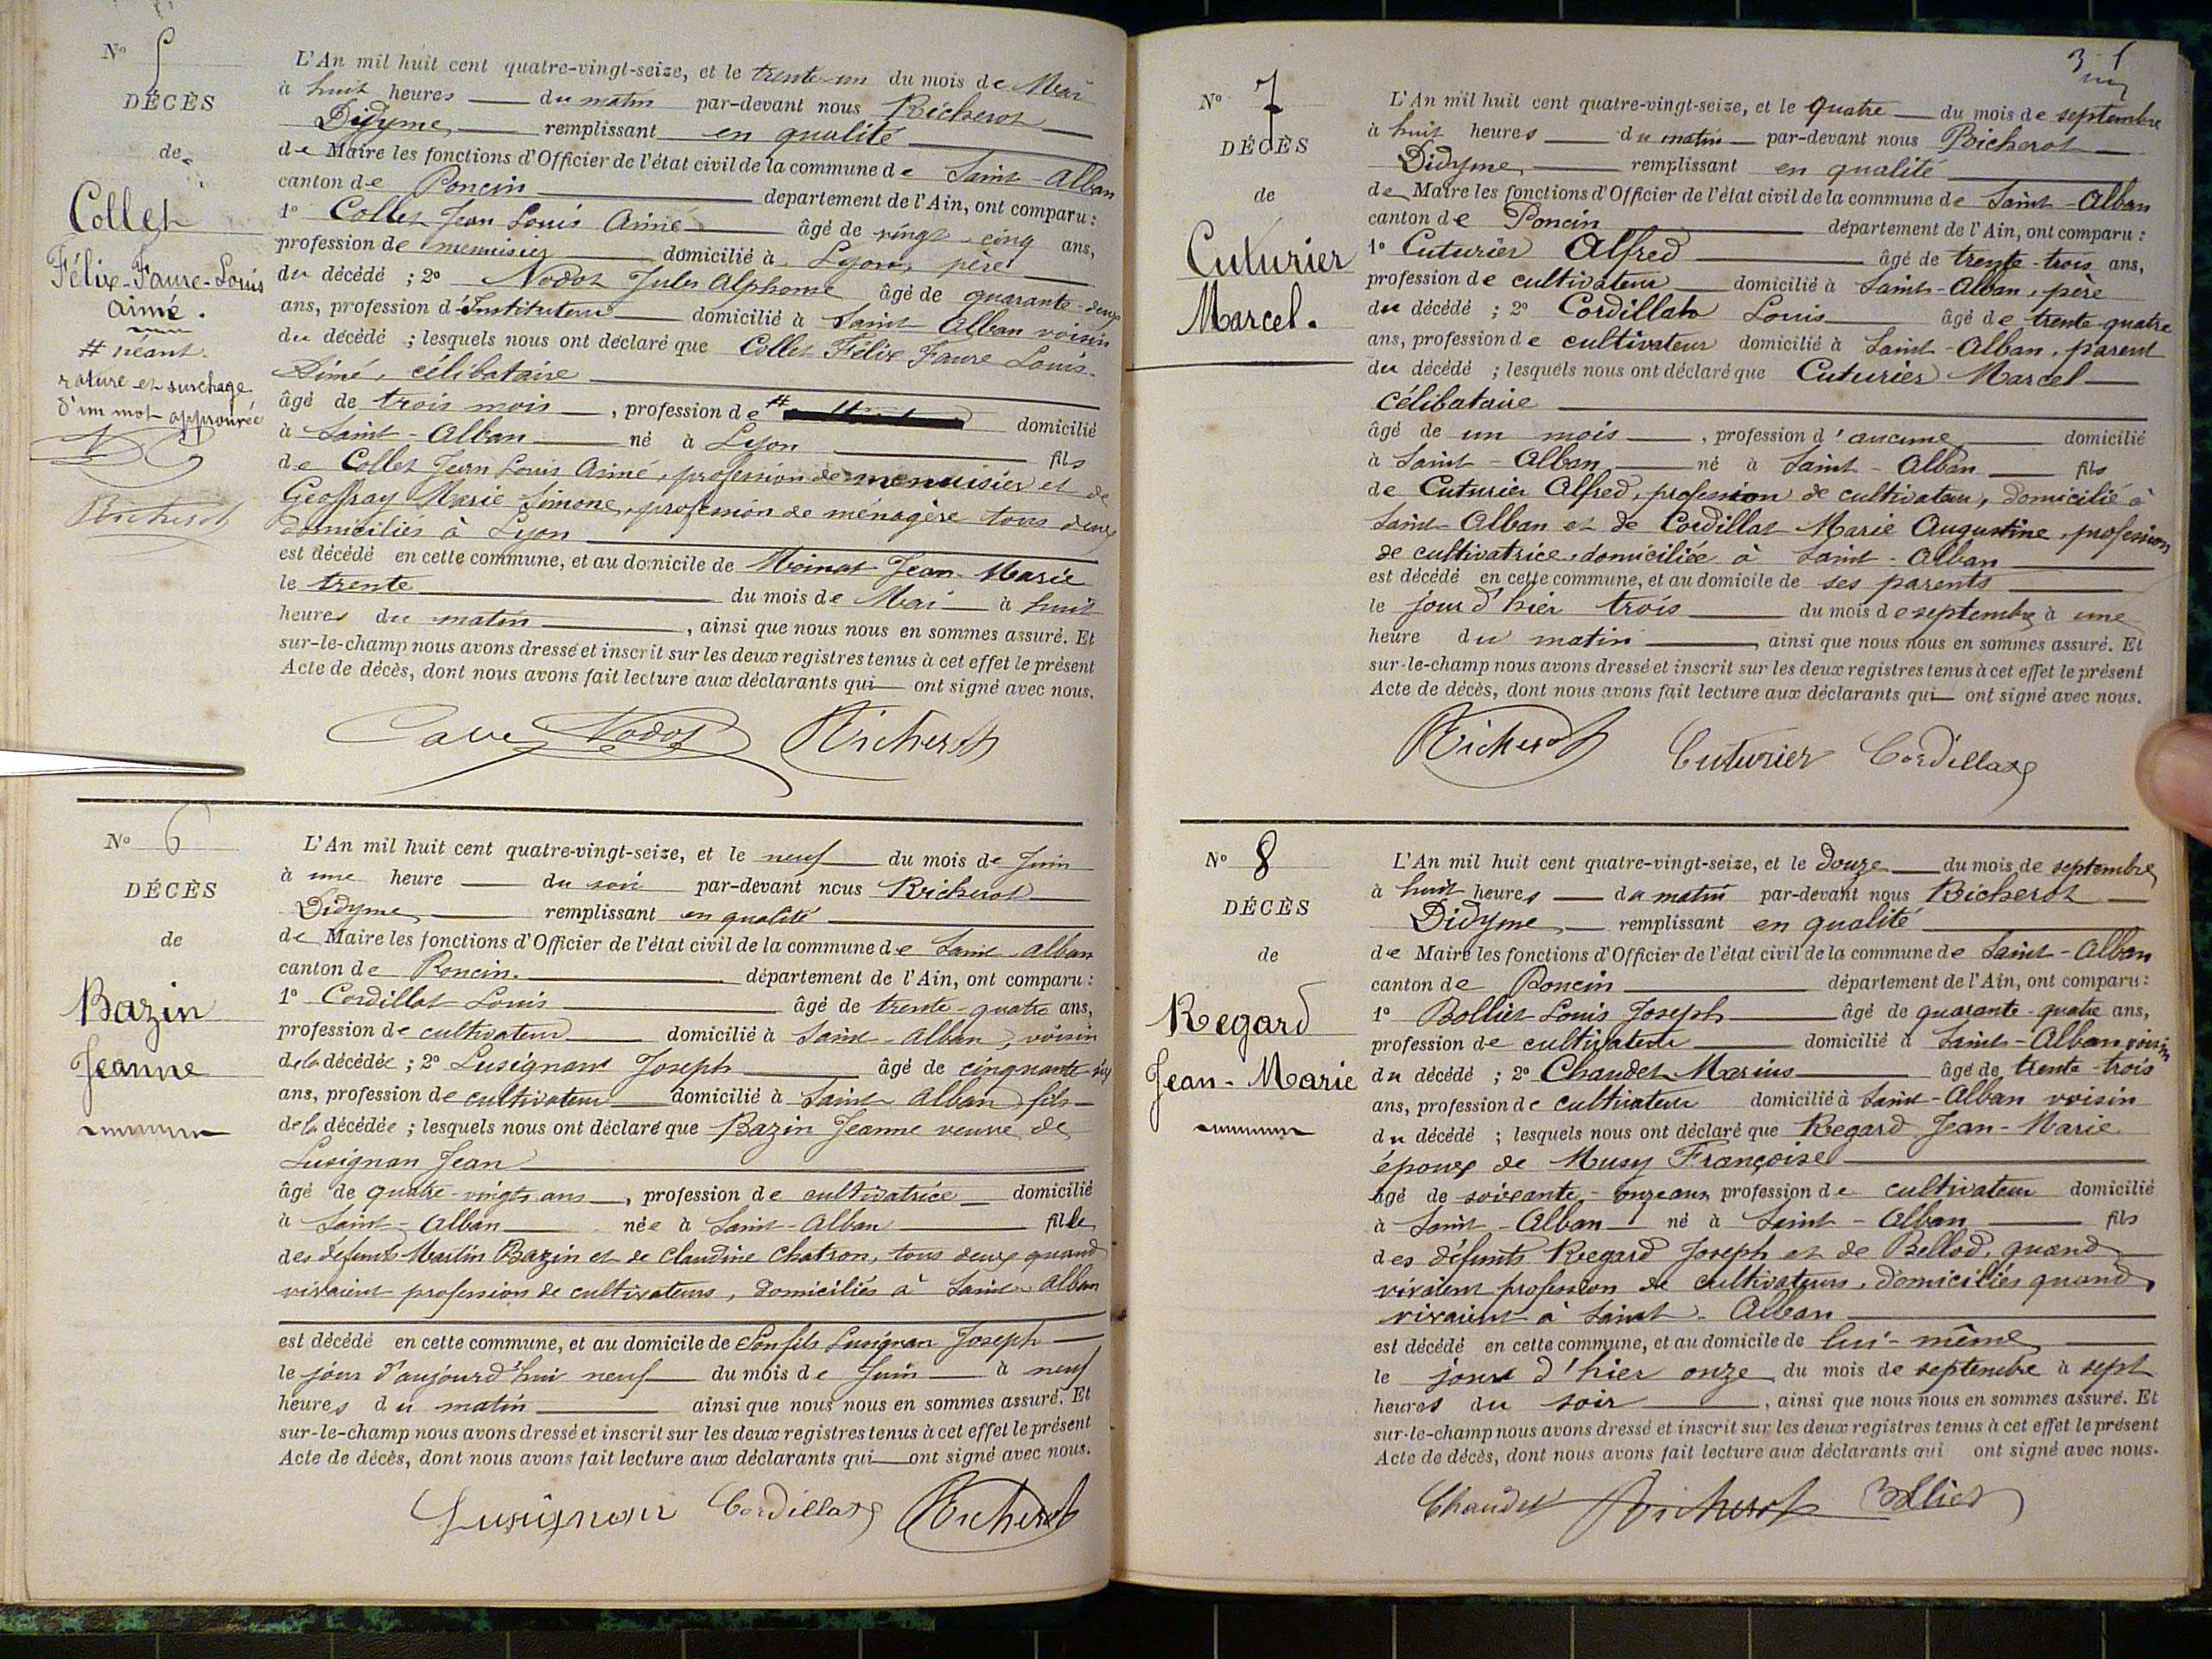 N° 5
DÉCÈS
de
Collet
Félix-Faure-Louis
aimé.
# néant.
rature et surchage
d'un mot approuvée
Richerot
L'An mil huit cent quatre-vingt-seize, et le trente-un du mois de Mai
à huit heures du matin par-devant nous Richerot
Didyme, remplissant en qualité
de Maire les fonctions d'Officier de l'état civil de la commune de Saint-Alban
canton de Poncin département de l'Ain, ont comparu :
1° Collet Jean Louis Aimé âgé de vingt-cinq ans,
profession de menuisier domicilié à Lyon, père
du décédé ; 2° Nodot Jules Alphonse âgé de quarante-deux
ans, profession d'Instituteur domicilié à Saint Alban voisin
du décédé ; lesquels nous ont déclaré que Collet Félix Faure Louis
Aimé, célibataire
âgé de trois mois, profession de # domicilié
à Saint-Alban né à Lyon fils
de Collet Jean Louis Aimé, profession de menuisier et de
Geoffray Marie Simone, profession de ménagère tous deux
domiciliés à Lyon
est décédé en cette commune, et au domicile de Moinat Jean-Marie
le trente du mois de Mai à huit
heures du matin, ainsi que nous nous en sommes assuré. Et
sur-le-champ nous avons dressé et inscrit sur les deux registres tenus à cet effet le présent
Acte de décès, dont nous avons fait lecture aux déclarants qui ont signé avec nous.
Nodot Richerot
N° 6
DÉCÈS
de
Bazin
Jeanne
L'An mil huit cent quatre-vingt-seize, et le neuf du mois de Juin
à une heure du soir par-devant nous Richerot
Didyme, remplissant en qualité
de Maire les fonctions d'Officier de l'état civil de la commune de Saint-Alban
canton de Poncin. département de l'Ain, ont comparu :
1° Cordillat Louis âgé de trente-quatre ans,
profession de cultivateur domicilié à Saint-Alban, voisin
de la décédée ; 2° Lusignan Joseph âgé de cinquante-six
ans, profession de cultivateur domicilié à Saint-Alban fils
de la décédée ; lesquels nous ont déclaré que Bazin Jeanne veuve de
Lusignan Jean
âgé de quatre-vingts ans, profession de cultivatrice domicilié
à Saint-Alban née à Saint-Alban fille
des défunts Martin Bazin et de Claudine Chatron, tous deux quand
vivaient profession de cultivateurs, domiciliés à Saint-Alban
est décédé en cette commune, et au domicile de Son fils Lusignan Joseph
le jour d'aujourd'hui neuf du mois de Juin à neuf
heures du matin ainsi que nous nous en sommes assuré. Et
sur-le-champ nous avons dressé et inscrit sur les deux registres tenus à cet effet le présent
Acte de décès, dont nous avons fait lecture aux déclarants qui ont signé avec nous.
Lusignan Cordillat Richerot
N° 7
DÉCÈS
de
Cuturier
Marcel.
L'An mil huit cent quatre-vingt-seize, et le quatre du mois de septembre
à huit heures du matin par-devant nous Richerot
Didyme, remplissant en qualité
de Maire les fonctions d'Officier de l'état civil de la commune de Saint-Alban
canton de Poncin département de l'Ain, ont comparu :
1° Cuturier Alfred âgé de trente-trois ans,
profession de cultivateur domicilié à Saint-Alban, père
du décédé ; 2° Cordillat Louis âgé de trente-quatre
ans, profession de cultivateur domicilié à Saint-Alban, parent
du décédé ; lesquels nous ont déclaré que Cuturier Marcel
célibataire
âgé de un mois, profession d'aucune domicilié
à Saint-Alban né à Saint-Alban fils
de Cuturier Alfred, profession de cultivateur, domicilié à
Saint-Alban et de Cordillat Marie Augustine, profession
de cultivatrice, domiciliée à Saint-Alban
est décédé en cette commune, et au domicile de ses parents
le jour d'hier trois du mois de septembre à une
heure du matin, ainsi que nous nous en sommes assuré. Et
sur-le-champ nous avons dressé et inscrit sur les deux registres tenus à cet effet le présent
Acte de décès, dont nous avons fait lecture aux déclarants qui ont signé avec nous.
Richerot Cuturier Cordillat
N° 8
DÉCÈS
de
Regard
Jean-Marie
L'An mil huit cent quatre-vingt-seize, et le douze du mois de septembre
à huit heures du matin par-devant nous Richerot
Didyme, remplissant en qualité
de Maire les fonctions d'Officier de l'état civil de la commune de Saint-Alban
canton de Poncin département de l'Ain, ont comparu :
1° Bolliet Louis Joseph âgé de quarante-quatre ans,
profession de cultivateur domicilié à Saint-Alban voisin
du décédé ; 2° Chaudet Marius âgé de trente-trois
ans, profession de cultivateur domicilié à Saint-Alban voisin
du décédé ; lesquels nous ont déclaré que Regard Jean-Marie
époux de Musy Françoise
âgé de soixante-onze ans, profession de cultivateur domicilié
à Saint-Alban né à Saint-Alban fils
des défunts Regard Joseph et de Bellod, quand
vivaient profession de cultivateurs, domiciliés quand
vivaient à Saint-Alban
est décédé en cette commune, et au domicile de lui-même
le jour d'hier onze du mois de septembre à sept
heures du soir, ainsi que nous nous en sommes assuré. Et
sur-le-champ nous avons dressé et inscrit sur les deux registres tenus à cet effet le présent
Acte de décès, dont nous avons fait lecture aux déclarants qui ont signé avec nous.
Chaudet Richerot Bolliet